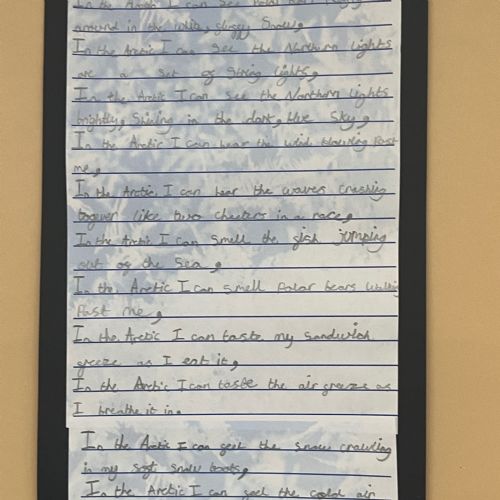 In the Arctic I can see Polar bears
around in the white, slugy Snow,
In the Arctic I can see the Northern Lights
are a set of String lights,
In the Arctic I can see the Northern Lights
brightly, Shining in the dark, blue Sky,
In the Arctic I can hear the wind blowing Past
me,
In the Arctic, I can hear the waves Crashing
togever like two cheeters in a race,
In the Arctic I can Smell the gish jumping
out og the Sea,
In the Arctic I can smell Polar bears walking
Past me,
In the Arctic I can taste my Sandwich
greeze as I eat it,
In the Arctic I can taste the air greeze as
I breathe it in,
In the Arctic I can geel the snow crawling
in my sogt snow boots,
In the Arctic I can geel the cold air